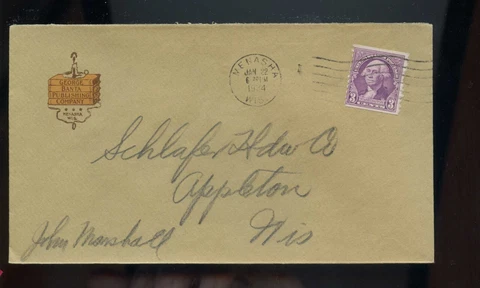 GEORGE
BANTA
PUBLISHING
COMPANY
MENASHA,
WIS.
MENASHA
JAN 22
1934
WIS.
3¢ 3¢
Schlafer Hdw Co
Appleton
Wis
John Marshall